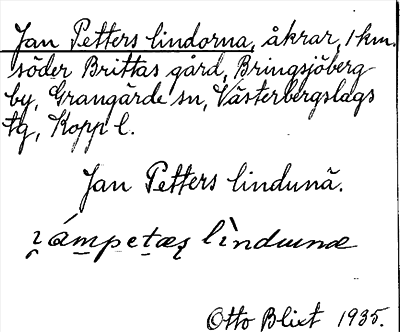 Jan Petters lindorna, åkrar, 1 km.
söder Brittas gård, Bringsjöberg
by, Grangärde sn, Västerbergslags
tg, Kopp l.
Jan Petters lindunä.
lìndunæ
Otto Blixt 1935.